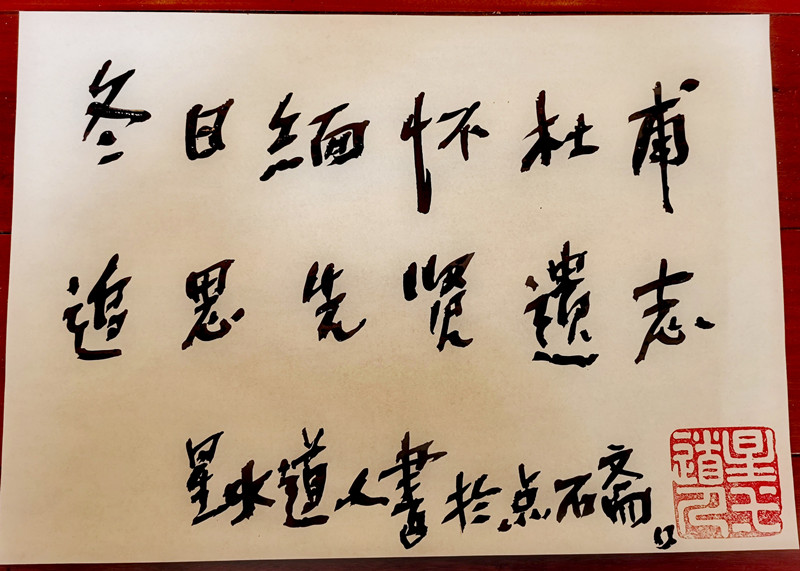 冬日緬怀杜甫
追思先贤遺志
星水道人書於点石斋
星水道人